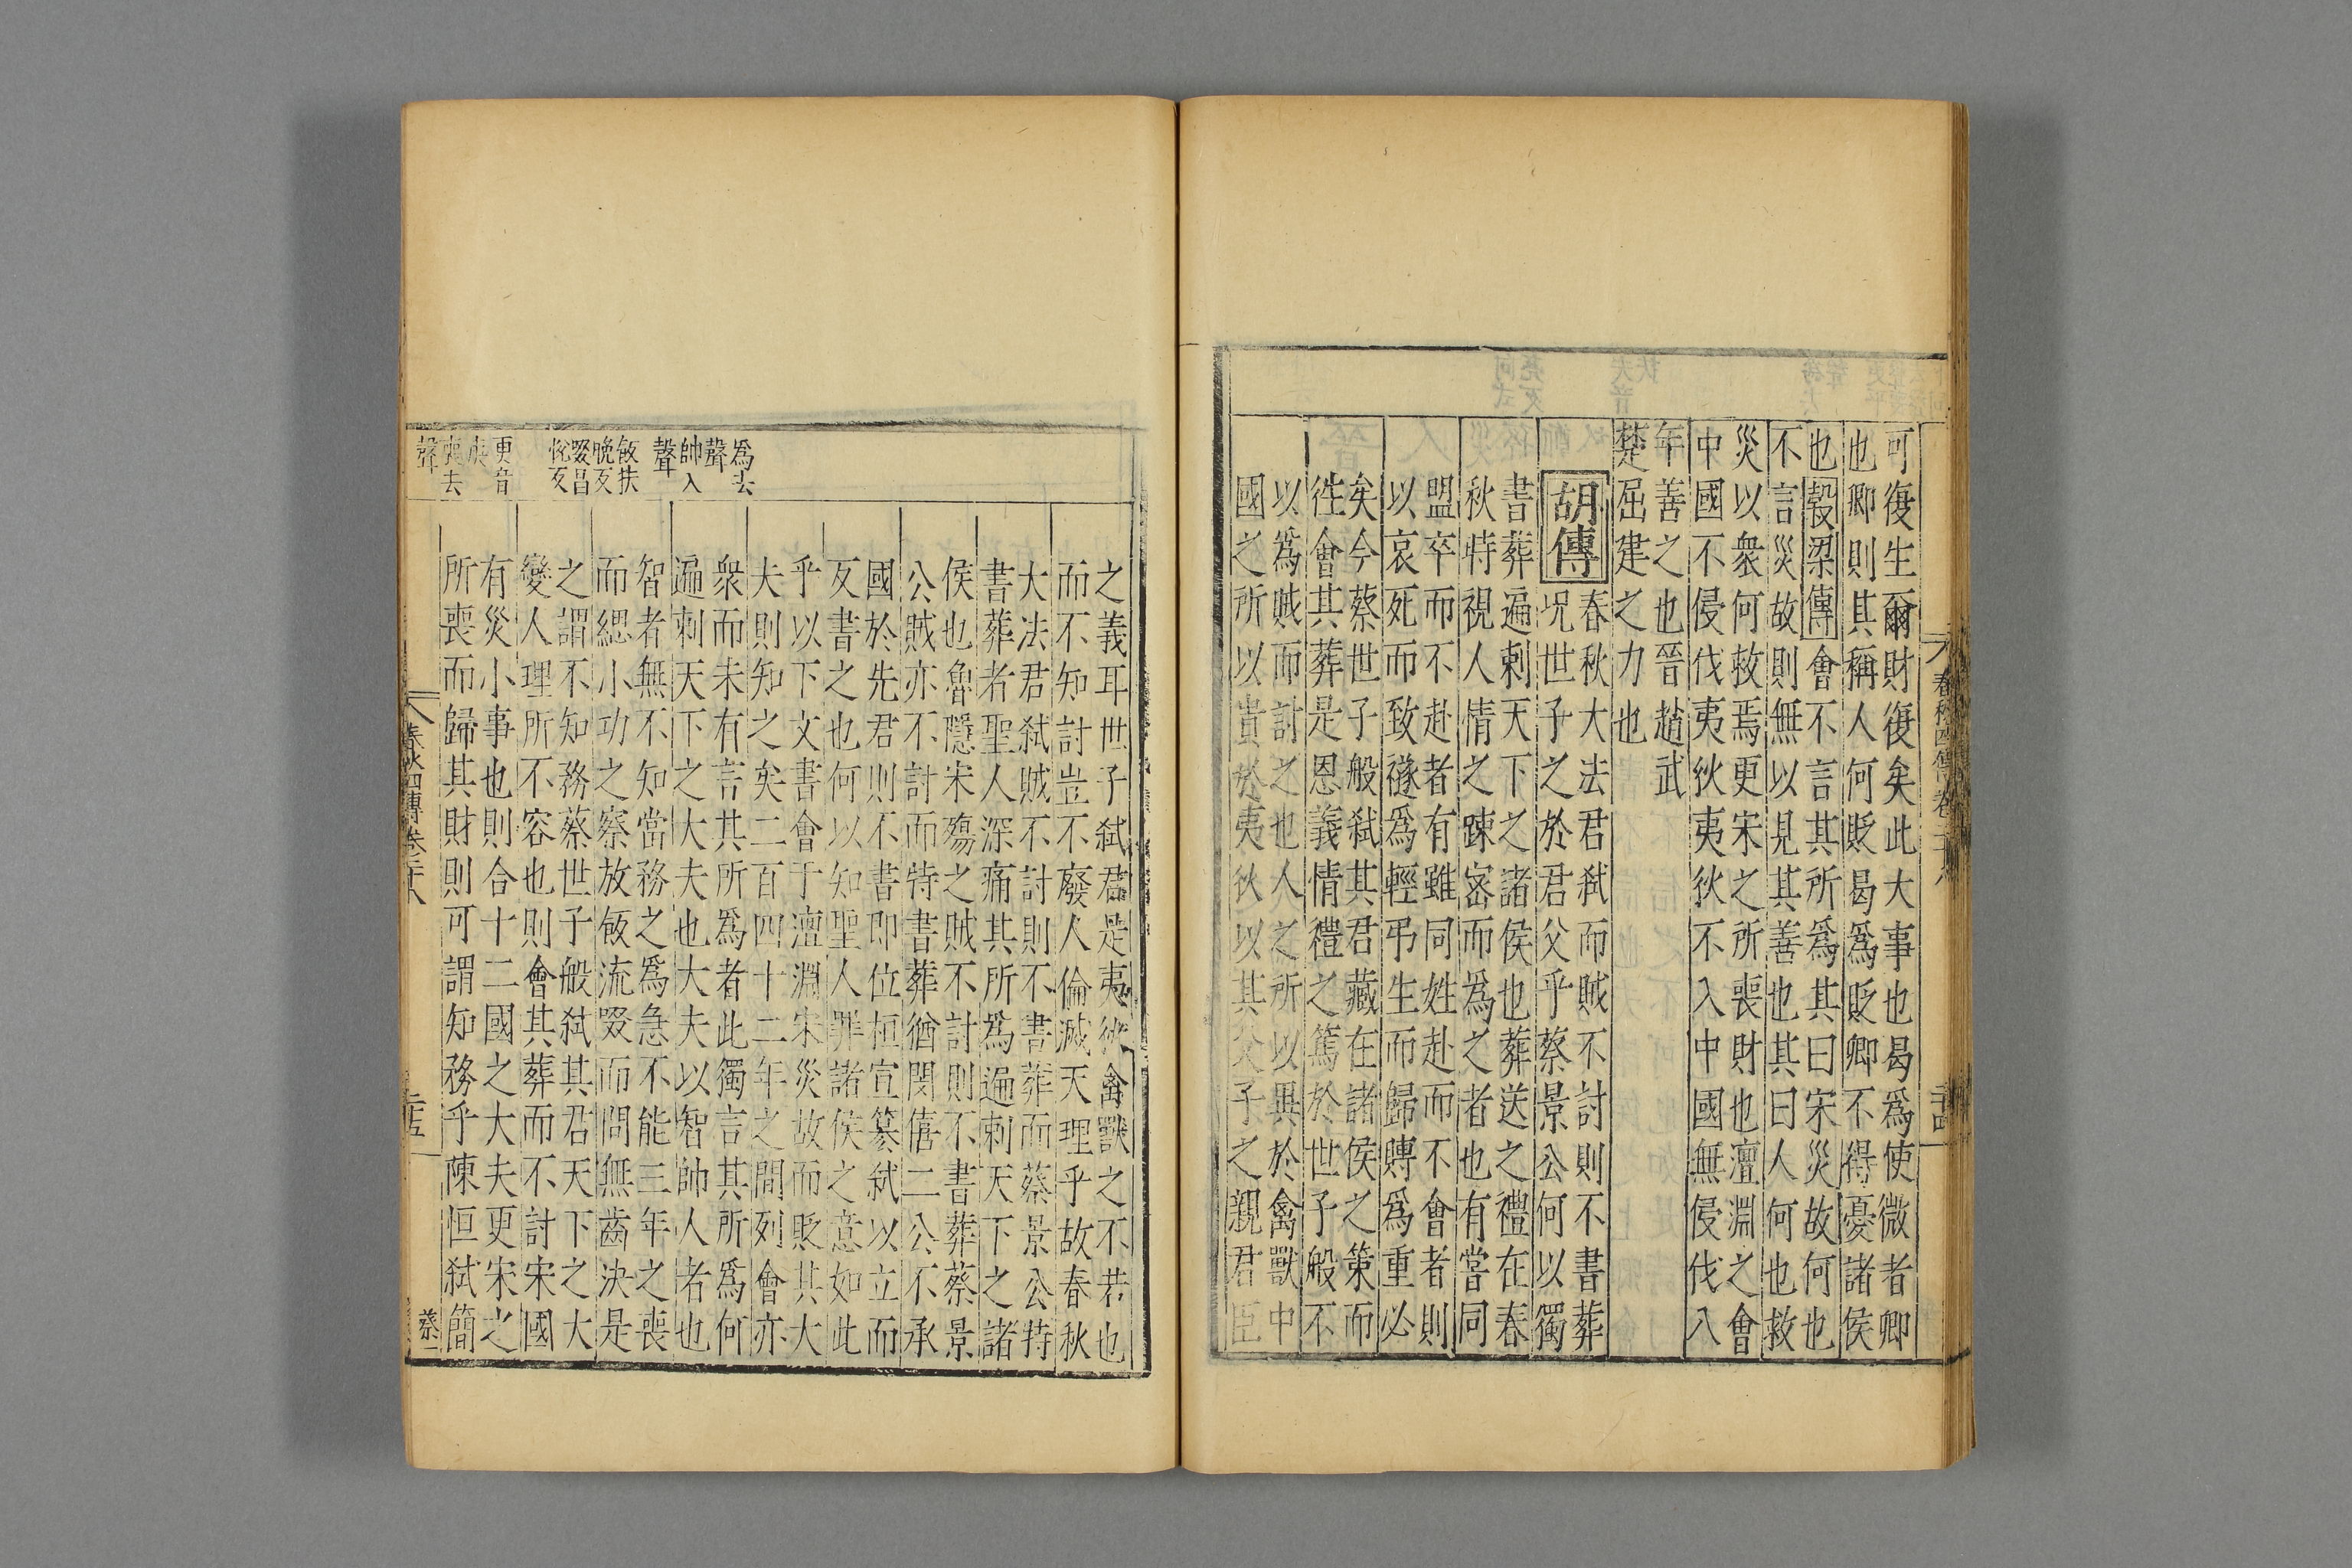 可復生爾財復矣此大事也曷爲使微者卿
也卿則其稱人何貶曷爲貶卿不得憂諸侯
也穀梁傳會不言其所爲其曰宋災故何也
不言災故則無以見其善也其曰人何也救
災以衆何救焉更宋之所喪財也澶淵之會
中國不侵伐夷狄夷狄不入中國無侵伐八
年善之也晉趙武
楚屈建之力也
胡傳
春秋大法君弑而賊不討則不書葬
況世子之於君父乎蔡景公何以獨
書葬遍刺天下之諸侯也葬送之禮在春
秋時視人情之踈密而爲之者也有嘗同
盟卒而不赴者有雖同姓赴而不會者則
以哀死而致禭爲輕弔生而歸賻爲重必
矣今蔡世子般弑其君藏在諸侯之策而
徃會其葬是恩義情禮之篤於世子般不
以爲賊而討之也人之所以異於禽獸中
國之所以貴於夷狄以其父子之親君臣
春秋四傳卷二十八
二十四
之義耳世子弑君是夷狄禽獸之不若也
而不知討豈不廢人倫滅天理乎故春秋
大法君弑賊不討則不書葬而蔡景公特
書葬者聖人深痛其所爲遍刺天下之諸
侯也魯隱宋殤之賊不討則不書葬蔡景
公賊亦不討而特書葬猶閔僖二公不承
國於先君則不書即位桓宣篡弑以立而
反書之也何以知聖人罪諸侯之意如此
乎以下文書會于澶淵宋災故而貶其大
夫則知之矣二百四十二年之間列會亦
衆而未有言其所爲者此獨言其所爲何
遍刺天下之大夫也大夫以智帥人者也
智者無不知當務之爲急不能三年之喪
而緦小功之察放飯流歠而問無齒決是
之謂不知務蔡世子般弑其君天下之大
變人理所不容也則會其葬而不討宋國
有災小事也則合十二國之大夫更宋之
所喪而歸其財則可謂知務乎陳恒弑簡
爲去
聲
帥入
聲
飯扶
晩反
歠昌
恱反
更音
庚
喪去
聲
春秋四傳卷二十八
二十五
蔡一